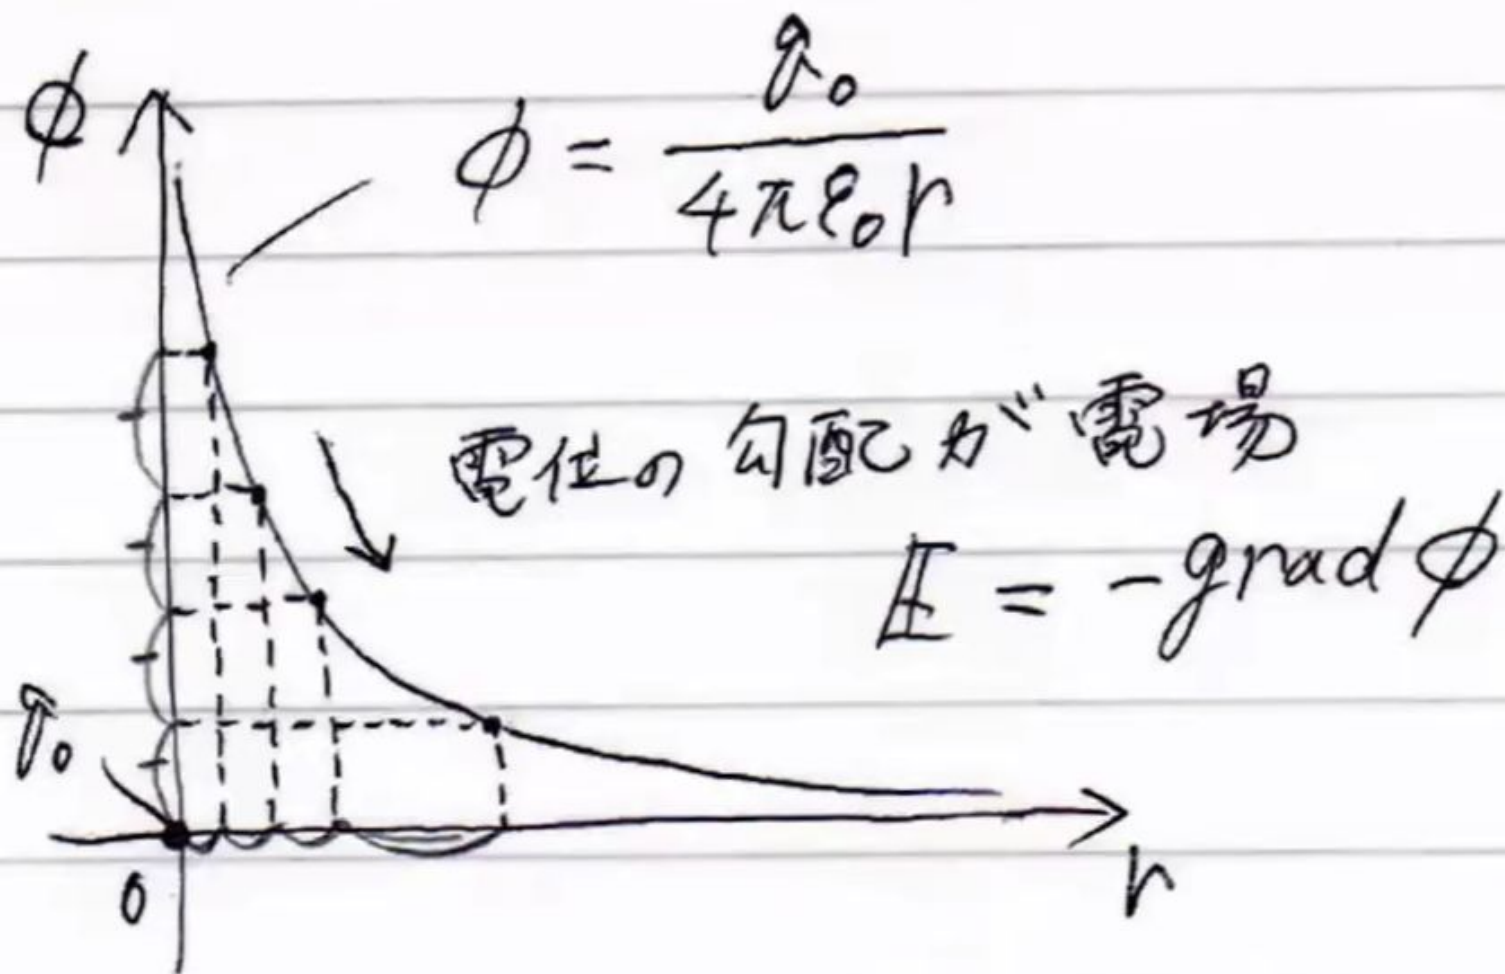 φ
φ = q₀ / 4πε₀r
電位の勾配が電場
E = -grad φ
q₀
0
r